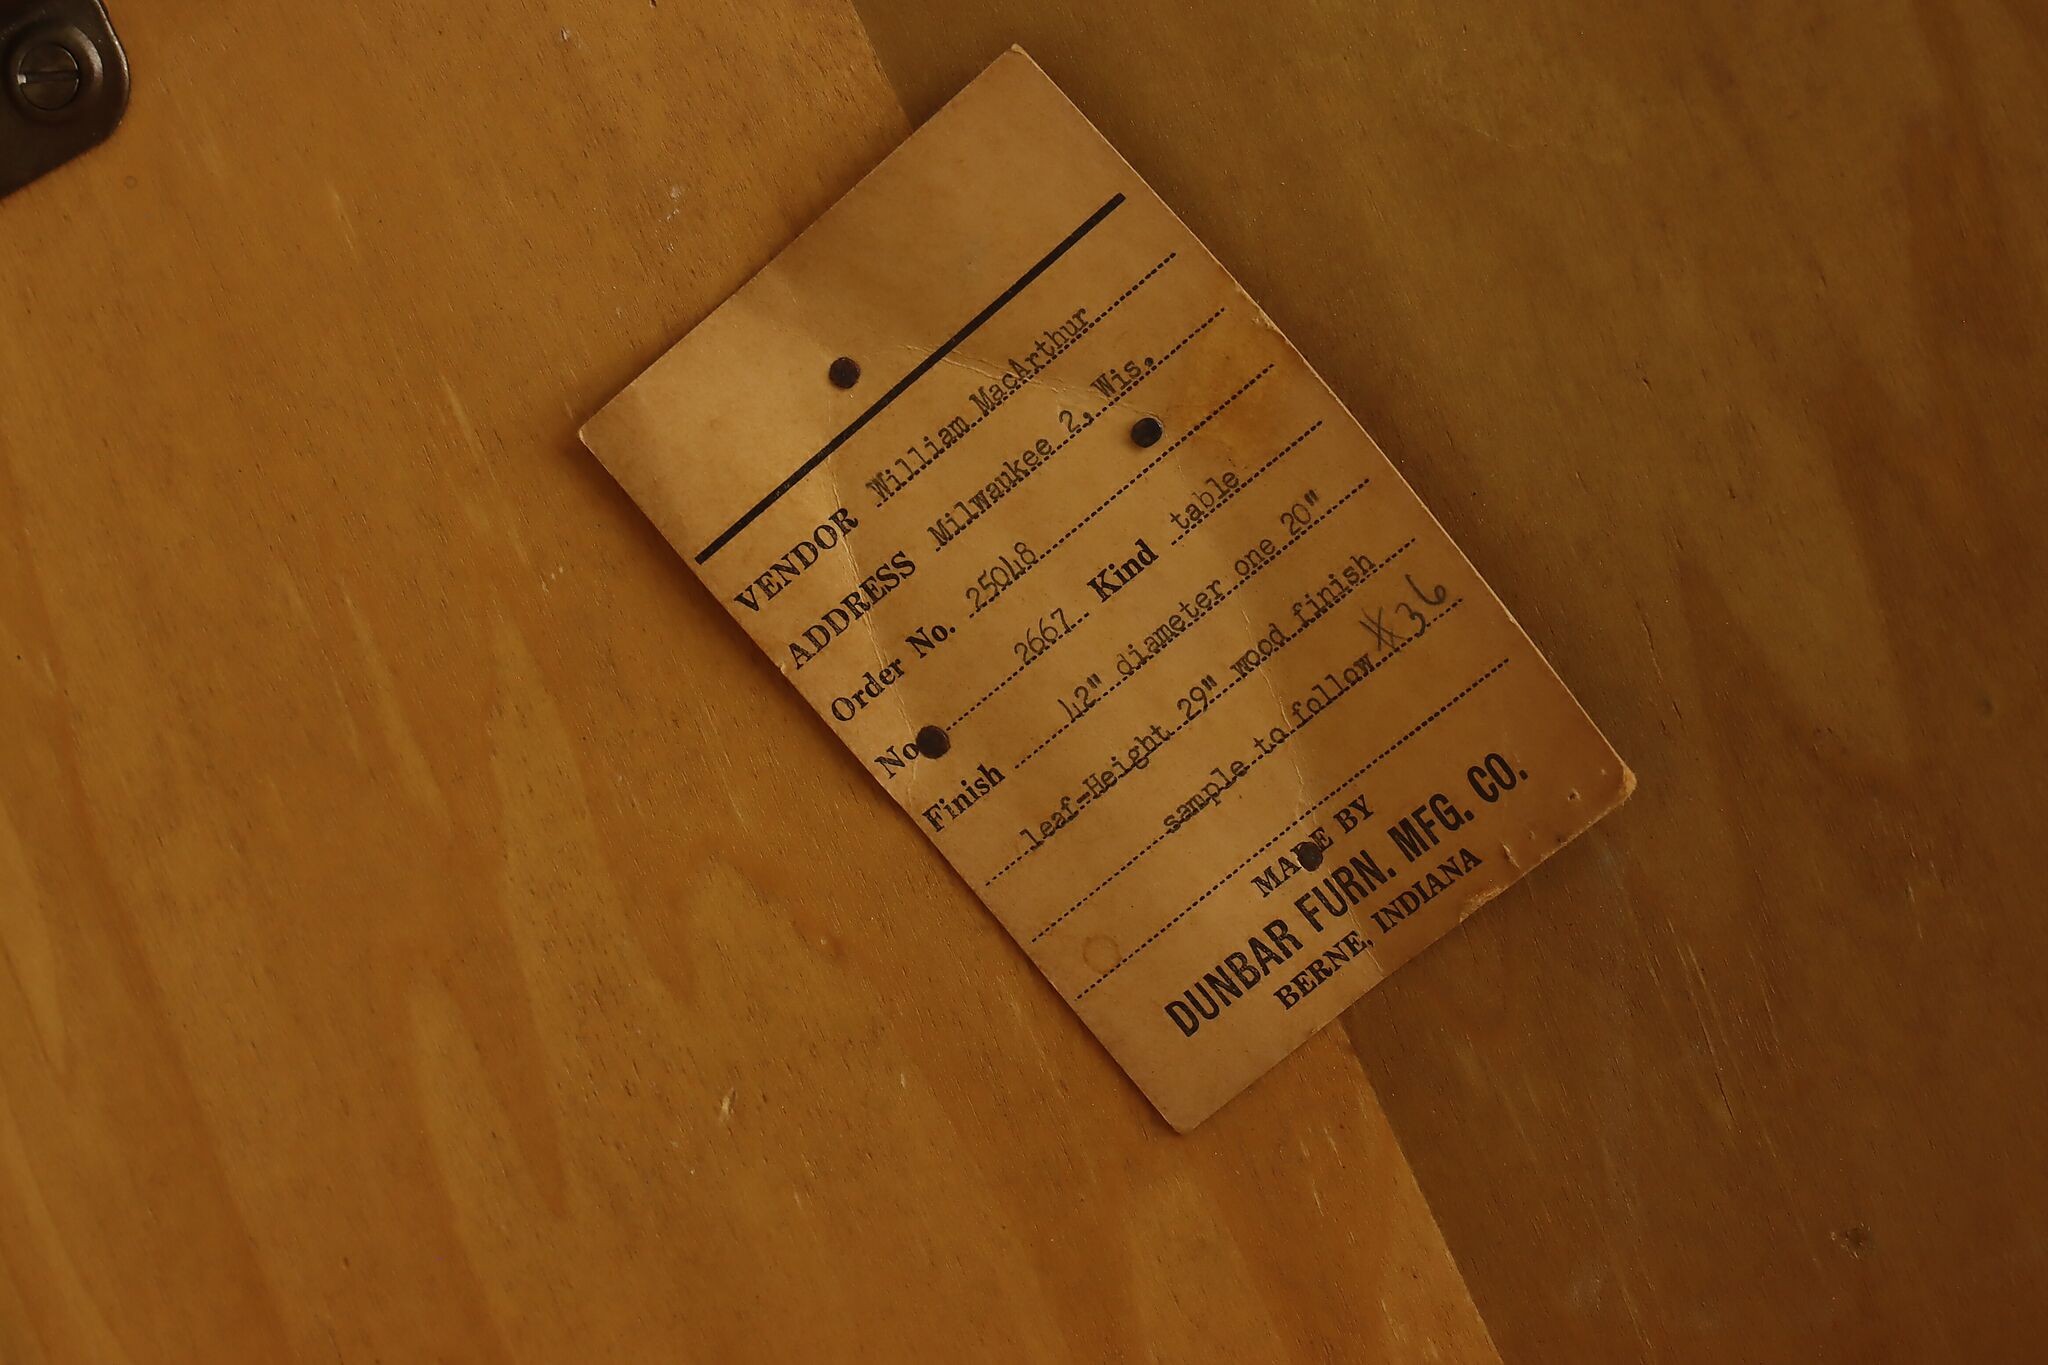 VENDOR William MacArthur
ADDRESS Milwaukee 2, Wis.
Order No. 25048
No 2667 Kind table
Finish 42" diameter one 20"
leaf-Height 29" wood finish
sample to follow # 36
MADE BY
DUNBAR FURN. MFG. CO.
BERNE, INDIANA